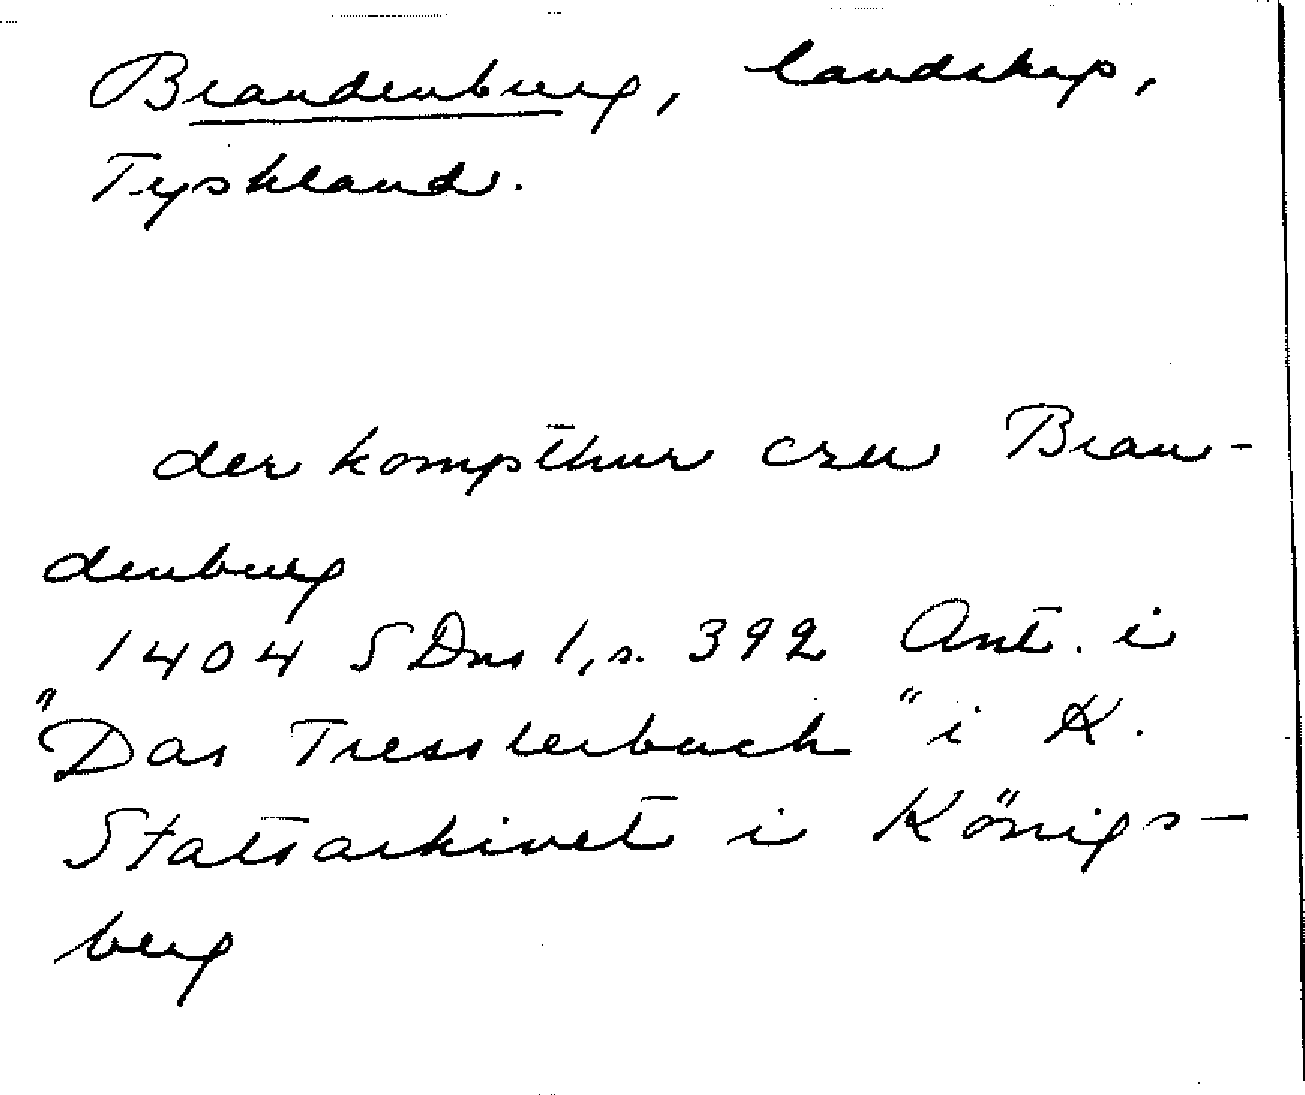 Brandenburg, landskap,
Tyskland.
der kompthur czu Bran-
denburg
1404 SDns 1, s. 392 Ant. i
"Das Tresslerbuch" i K.
Statsarkivet i Königs-
berg